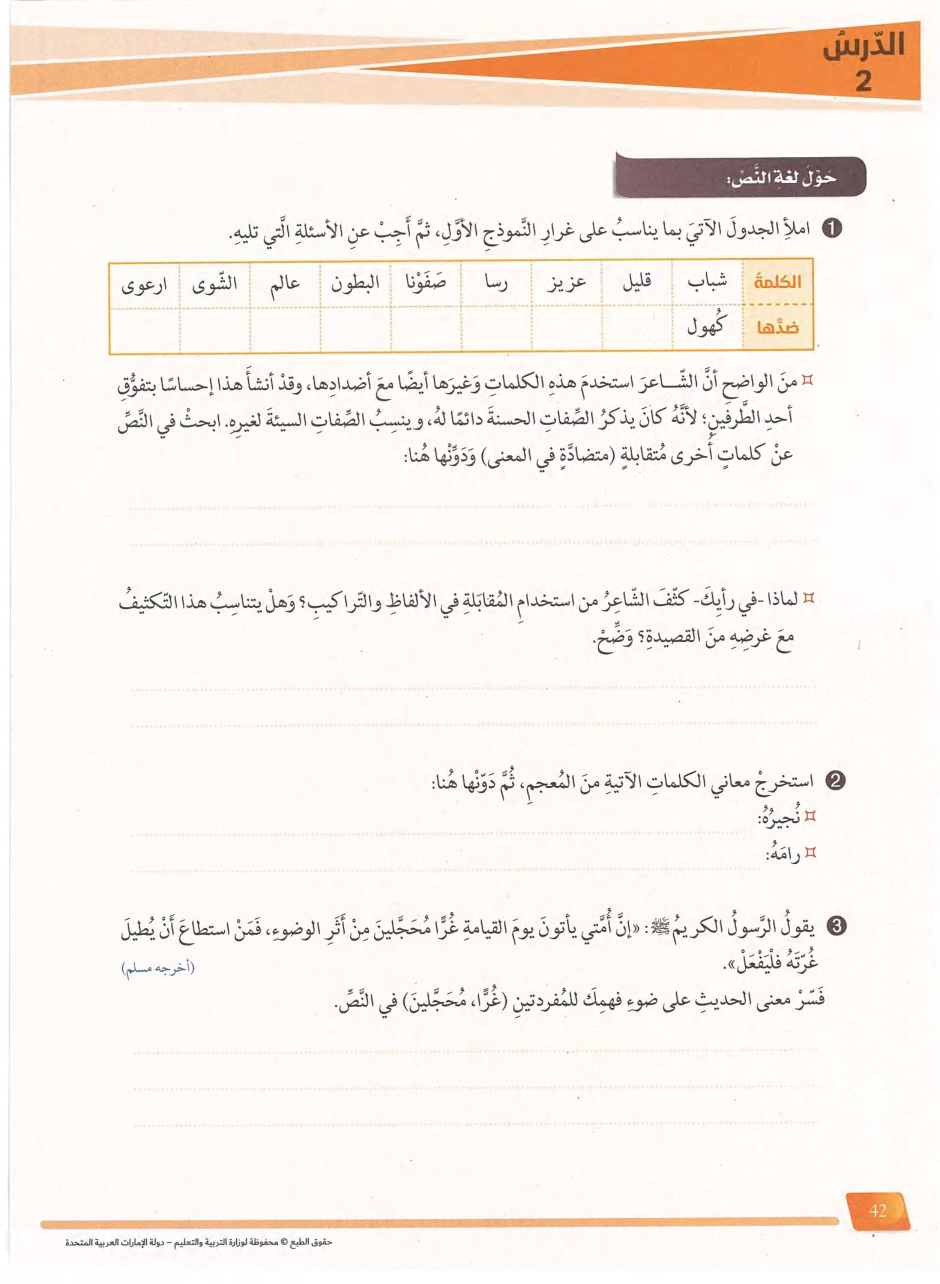 الدّرسُ
2
حَوْلَ لغةِ النَّصِّ:
1 املأِ الجدولَ الآتيَ بما يناسبُ على غرارِ النَّموذجِ الأوَّلِ، ثمَّ أَجِبْ عنِ الأسئلةِ الَّتي تليهِ.
الكلمةُ شباب قليل عزيز رسا صَفَوْنا البطون عالم الشّوى ارعوى
ضدُّها كُهول
¤ منَ الواضحِ أنَّ الشّـــاعرَ استخدمَ هذهِ الكلماتِ وَغيرَها أيضًا معَ أضدادِها، وقدْ أنشأَ هذا إحساسًا بتفوُّقِ
أحدِ الطَّرفينِ؛ لأنَّهُ كانَ يذكرُ الصِّفاتِ الحسنةَ دائمًا لهُ، وينسِبُ الصِّفاتِ السيئةَ لغيرِهِ. ابحثْ في النَّصِّ
عنْ كلماتٍ أُخرى مُتقابلةٍ (متضادَّةٍ في المعنى) وَدَوِّنْها هُنا:
¤ لماذا -في رأيِكَ- كثّفَ الشّاعِرُ من استخدامِ المُقابَلةِ في الألفاظِ والتّراكيبِ؟ وَهلْ يتناسِبُ هذا التّكثيفُ
معَ غرضِهِ منَ القصيدةِ؟ وَضِّحْ.
2 استخرجْ معاني الكلماتِ الآتيةِ منَ المُعجمِ، ثُمَّ دَوّنْها هُنا:
¤ نُجيرُهُ:
¤ رامَهُ:
3 يقولُ الرَّسولُ الكريمُ ﷺ: «إنَّ أُمَّتي يأتونَ يومَ القيامةِ غُرًّا مُحَجَّلينَ مِنْ أَثَرِ الوضوءِ، فَمَنْ استطاعَ أَنْ يُطيلَ
غُرّتَهُ فلْيَفْعَلْ».
(أخرجه مسلم)
فَسّرْ معنى الحديثِ على ضوءِ فهمِكَ للمُفردتينِ (غُرًّا، مُحَجَّلينَ) في النَّصِّ.
42
حقوق الطبع © محفوظة لوزارة التربية والتعليم – دولة الإمارات العربية المتحدة